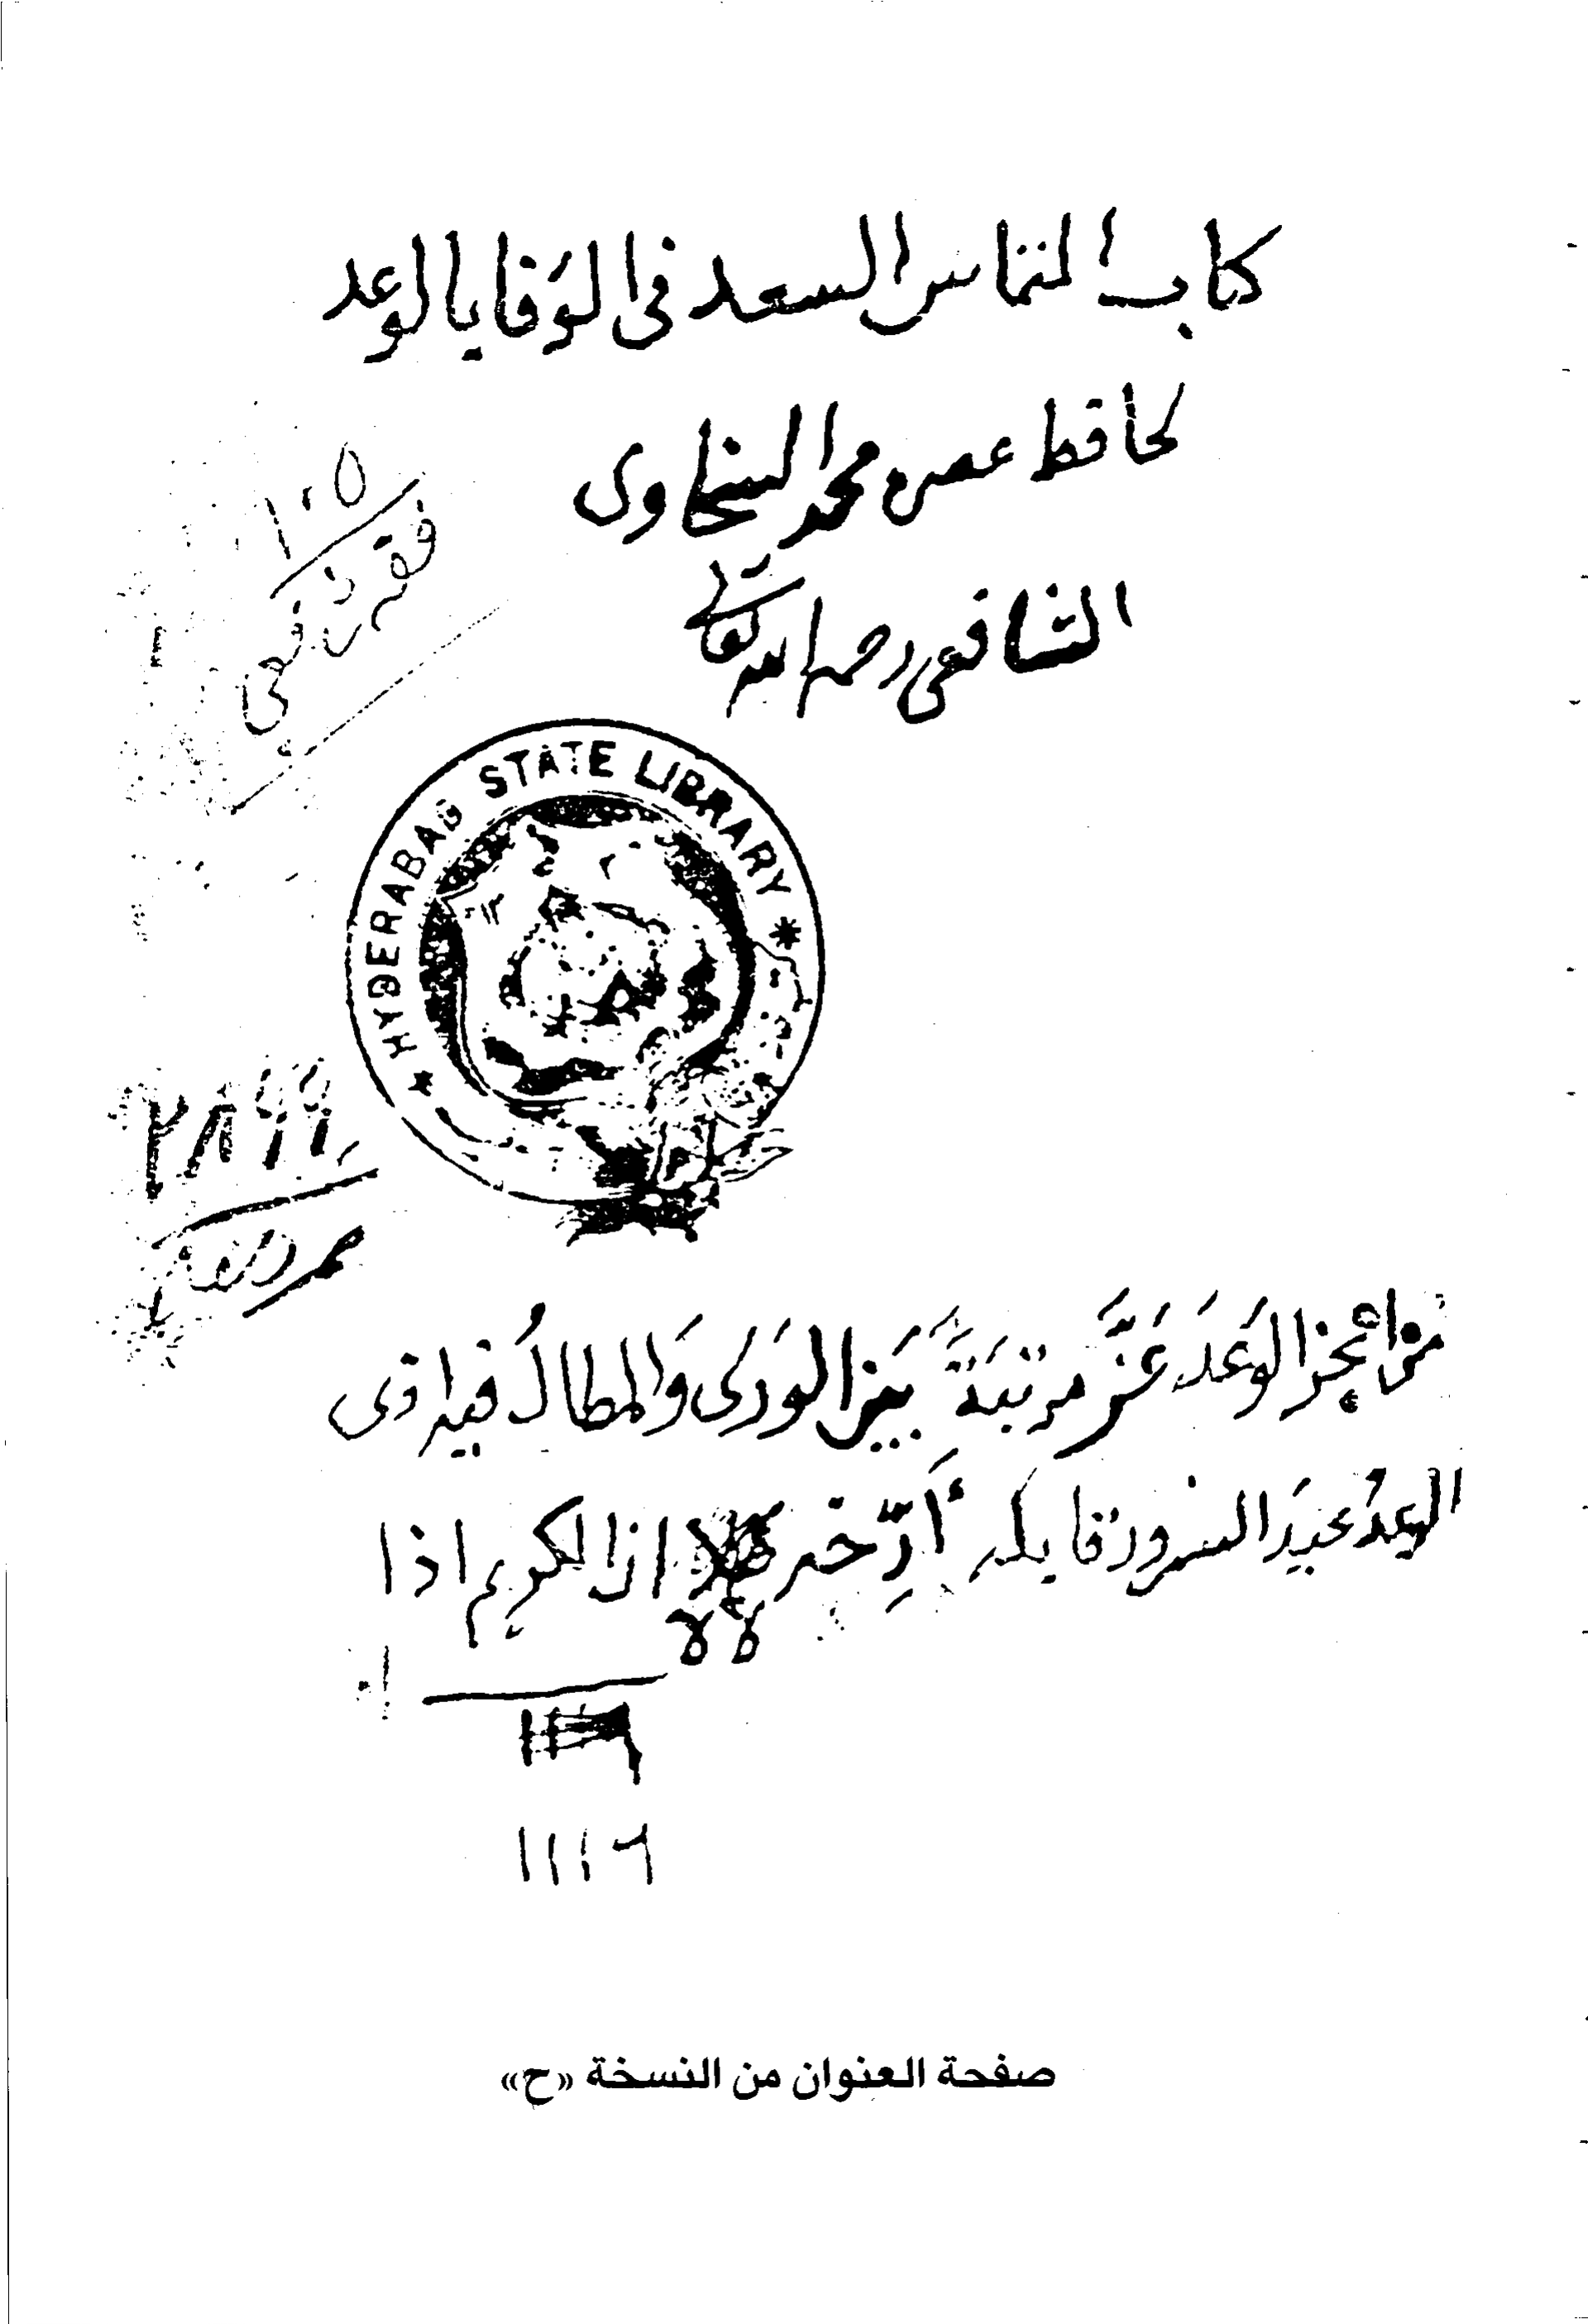 كتاب التماس السعد في الوَفا بالوعد
لحافظ عصره محمد السخاوى
الشافعى رحمه الله تعالى
١٠٥
فقه شافعى
HYDERABAD STATE LIBRARY
مَن انجز الوَعدَ عَزَّ مرتبَةً بَين الوَرَى وَالمطالُ فيه اذى
الوعدُ عبدَ السرور قابله
ان الكريم اذا
لالا
١١١٩
صفحة العنوان من النسخة «ح»